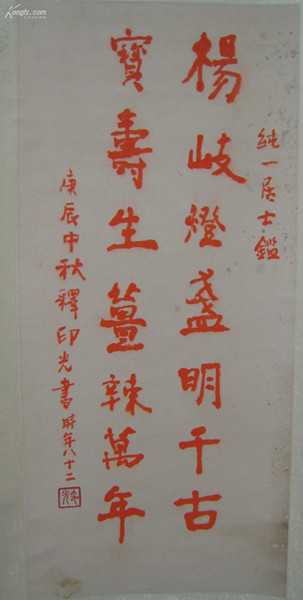 純一居士鑑
楊岐燈盞明千古
寶壽生薑辣萬年
庚辰中秋釋印光書時年八十二
Kongfz.com